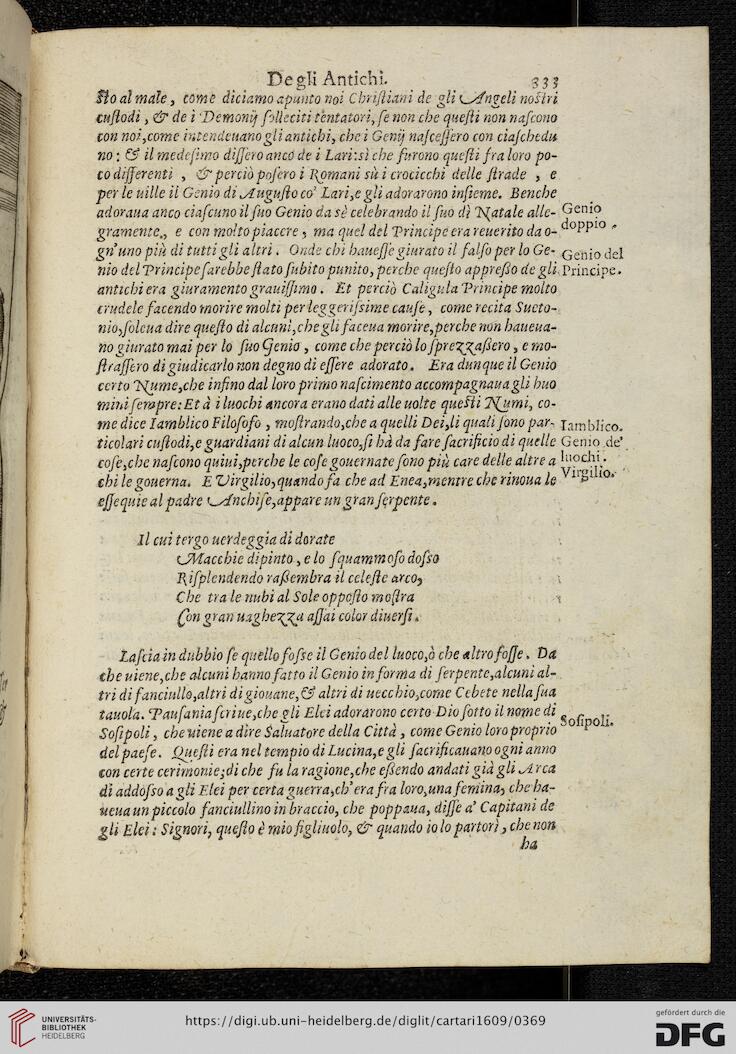 De gli Antichi. 333
sto al male, come diciamo apunto noi Christiani de gli Angeli nostri
custodi, & de i Demonij solleciti tentatori, se non che questi non nascono
con noi, come intendeuano gli antichi, che i Genij nascessero con ciaschedu
no: & il medesimo dissero anco de i Lari: sì che furono questi fra loro po-
co differenti, & perciò posero i Romani sù i crocicchi delle strade, e
per le uille il Genio di Augusto co' Lari, e gli adorarono insieme. Benche
adoraua anco ciascuno il suo Genio da sè celebrando il suo dì Natale alle-
gramente, e con molto piacere, ma quel del Principe era reuerito da o-
gn'uno più di tutti gli altri. Onde chi hauesse giurato il falso per lo Ge-
nio del Principe sarebbe stato subito punito, perche questo appresso de gli
antichi era giuramento grauissimo. Et perciò Caligula Principe molto
crudele facendo morire molti per leggerissime cause, come recita Sueto-
nio, soleua dire questo di alcuni, che gli faceua morire, perche non haueua-
no giurato mai per lo suo Genio, come che perciò lo sprezzassero, e mo-
strassero di giudicarlo non degno di essere adorato. Era dunque il Genio
certo Nume, che infino dal loro primo nascimento accompagnaua gli huo
mini sempre: Et à i luochi ancora erano dati alle uolte questi Numi, co-
me dice Iamblico Filosofo, mostrando, che a quelli Dei, li quali sono par-
ticolari custodi, e guardiani di alcun luoco, si hà da fare sacrificio di quelle
cose, che nascono quiui, perche le cose gouernate sono più care delle altre a
chi le gouerna. E Virgilio, quando fa che ad Enea, mentre che rinoua le
essequie al padre Anchise, appare un gran serpente.
Genio
doppio.
Genio del
Principe.
Iamblico.
Genio de'
luochi.
Virgilio.
Il cui tergo uerdeggia di dorate
Macchie dipinto, e lo squammoso dosso
Risplendendo rassembra il celeste arco,
Che tra le nubi al Sole opposto mostra
Con gran uaghezza assai color diuersi.
Lascia in dubbio se quello fosse il Genio del luoco, ò che altro fosse. Da
che uiene, che alcuni hanno fatto il Genio in forma di serpente, alcuni al-
tri di fanciullo, altri di giouane, & altri di uecchio, come Cebete nella sua
tauola. Pausania scriue, che gli Elei adorarono certo Dio sotto il nome di
Sosipoli, che uiene a dire Saluatore della Città, come Genio loro proprio
del paese. Questi era nel tempio di Lucina, e gli sacrificauano ogni anno
con certe cerimonie; di che fu la ragione, che essendo andati già gli Arca
di addosso a gli Elei per certa guerra, ch'era fra loro, una femina, che ha-
ueua un piccolo fanciullino in braccio, che poppaua, disse a' Capitani de
gli Elei: Signori, questo è mio figliuolo, & quando io lo partorì, che non
ha
Sosipoli.
UNIVERSITÄTS-
BIBLIOTHEK
HEIDELBERG
https://digi.ub.uni-heidelberg.de/diglit/cartari1609/0369
gefördert durch die
DFG